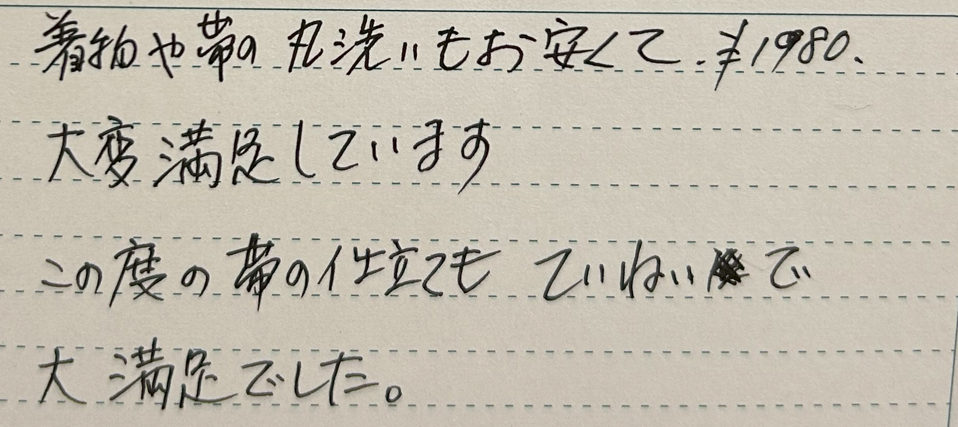 着物や帯の丸洗いもお安くて、¥1980、
大変満足しています
この度の帯の仕立ても ていねいで
大満足でした。